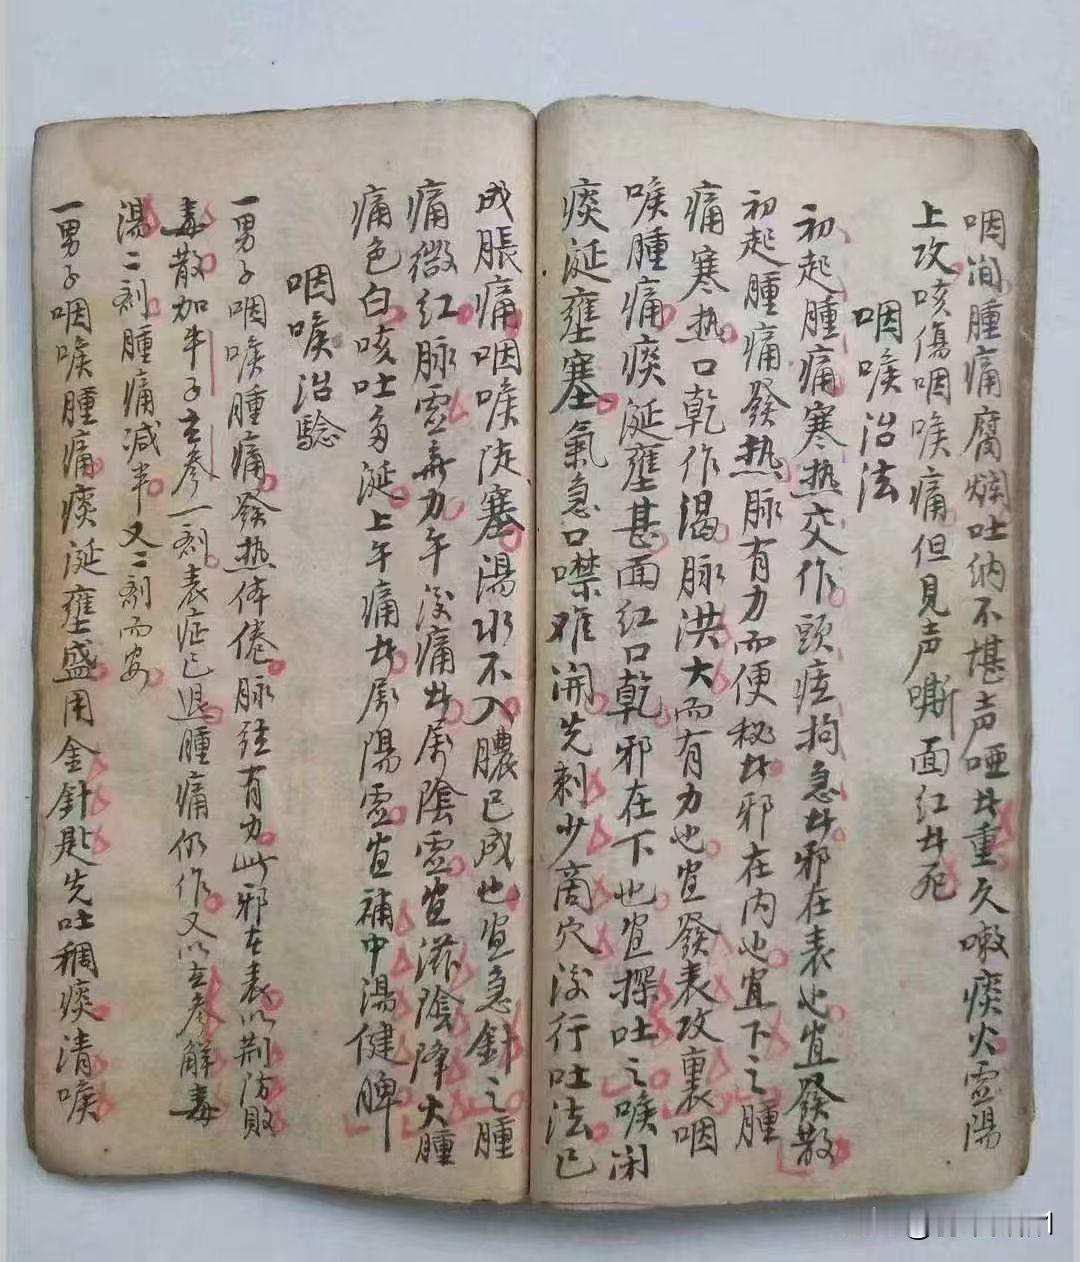 咽間腫痛腐爛吐納不堪声啞此重久嗽痰火虛陽
上攻咳傷咽喉痛但見声嘶面紅此死
咽喉治法
初起腫痛寒热交作頭疼拘急此邪在表也宜發散
初起腫痛發热脉有力而便秘此邪在内也宜下之腫
痛寒热口乾作渴脉洪大而有力也宜發表攻裏咽
喉腫痛痰涎壅甚面紅口乾邪在下也宜探吐之喉闭
痰涎壅塞氣急口噤难開先刺少商穴後行吐法已
成脹痛咽喉陡塞湯水不入膿已成也宜急針之腫
痛微紅脉虛無力午後痛此屬陰虛宜滋陰降火腫
痛色白咳吐多涎上午痛此屬陽虛宜補中湯健脾
咽喉治驗
一男子咽喉腫痛發热体倦脉弦有力此邪在表以荆防敗
毒散加牛子玄參一剤表症已退腫痛仍作又以玄參解毒
湯二剤腫痛减半又二剤而安
一男子咽喉腫痛痰涎壅盛用金針匙先吐稠痰清喉